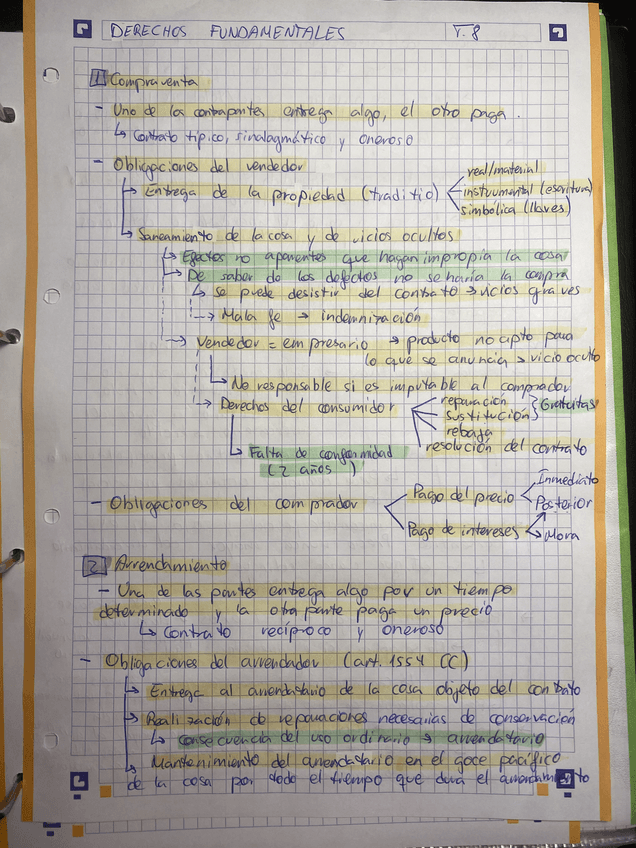 DERECHOS FUNDAMENTALES T.8
1 Compraventa
- Uno de la contrapartes entrega algo, el otro paga.
↳ Contrato típico, sinalagmático y oneroso
- Obligaciones del vendedor
real/material
→ Entrega de la propiedad (traditio) instrumental (escritura)
simbólica (llaves)
→ Saneamiento de la cosa y de vicios ocultos
→ Efectos no aparentes que hagan impropia la cosa
→ De saber de los defectos no se haría la compra
↳ se puede desistir del contrato → vicios graves
→ Mala fe → indemnización
→ Vendedor = empresario → producto no apto para
lo que se anuncia → vicio oculto
→ No responsable si es imputable al comprador
→ Derechos del consumidor
reparación
sustitución } Gratuitas
rebaja
resolución del contrato
→ Falta de conformidad
(2 años)
- Obligaciones del comprador
Pago del precio
Inmediato
Posterior
Pago de intereses → Mora
2 Arrendamiento
- Una de las partes entrega algo por un tiempo
determinado y la otra parte paga un precio
↳ Contrato recíproco y oneroso
- Obligaciones del arrendador (art. 1554 CC)
→ Entrega al arrendatario de la cosa objeto del contrato
→ Realización de reparaciones necesarias de conservación
↳ consecuencia del uso ordinario → arrendatario
→ Mantenimiento del arrendatario en el goce pacífico
de la cosa por todo el tiempo que dura el arrendamiento